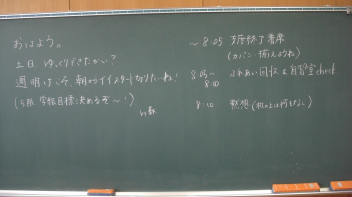 おはよう。
土日、ゆっくりできたかい?
週明けこそ、朝からイイスタートをきりたいね!
(5月 学級目標決めるぞ~!)
~8:05
(カバン 揃えようね)
8:05~8:10 ふれあい回収 & 自習室check
8:10 黙想(机の上は何もなし)